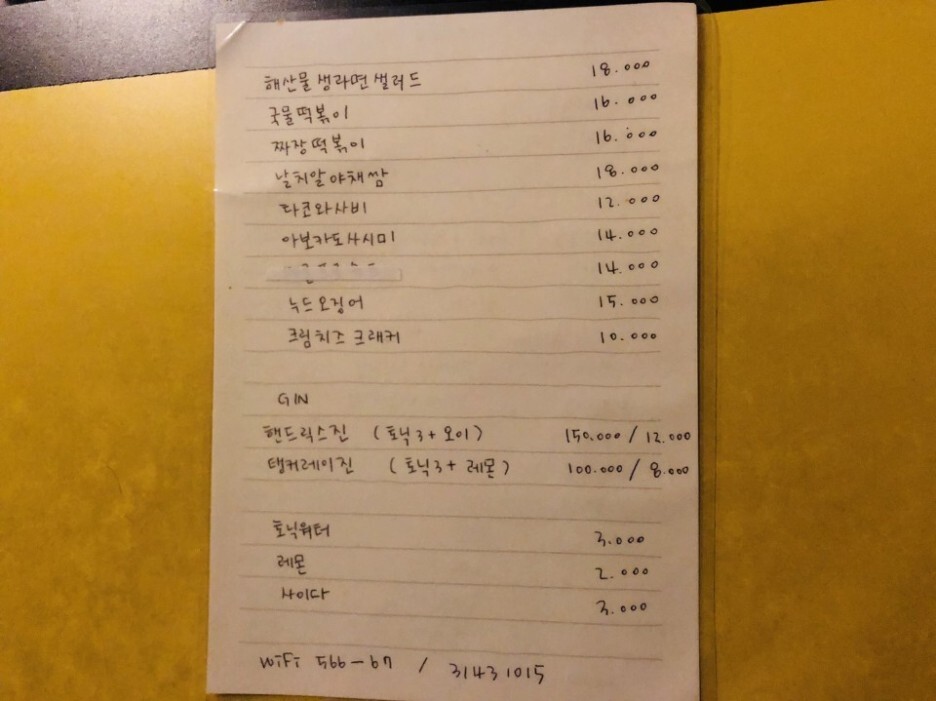 해산물 생라면 샐러드 18.000
국물떡볶이 16.000
짜장떡볶이 16.000
날치알야채쌈 18.000
타코와사비 12.000
아보카도사시미 14.000
14.000
누드오징어 15.000
크림치즈 크래커 10.000
GIN
핸드릭스진 (토닉3+오이) 150.000 / 12.000
탱커레이진 (토닉3+레몬) 100.000 / 8.000
토닉워터 3.000
레몬 2.000
사이다 3.000
WiFi 566-67 / 31431015